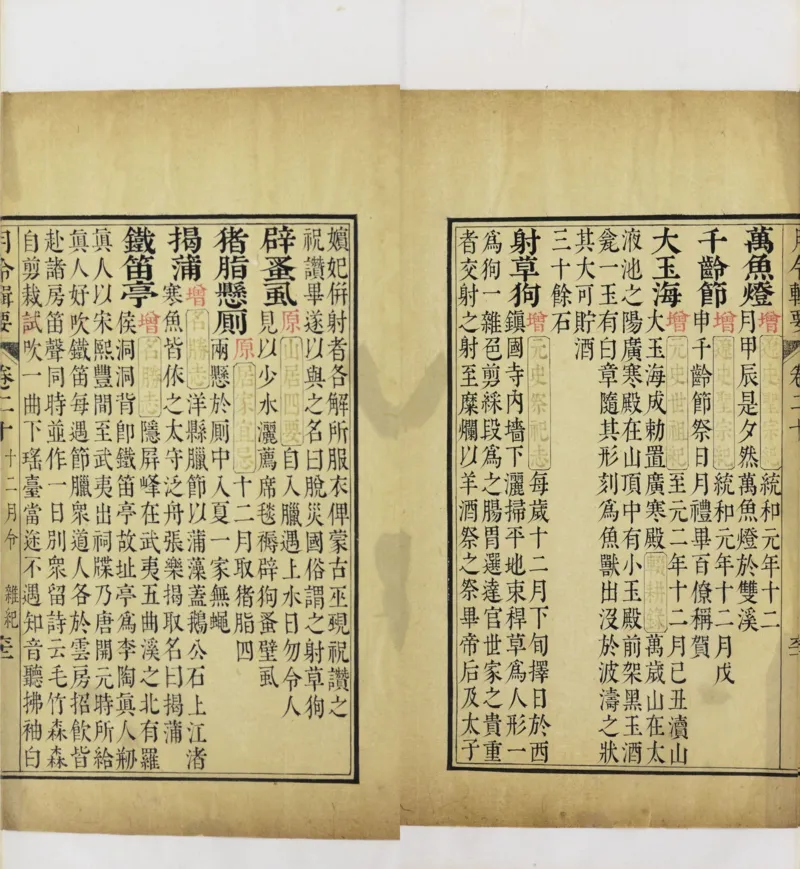 萬魚燈增遼史聖宗紀統和元年十二
月甲辰是夕然萬魚燈於雙溪
千齡節增遼史聖宗紀統和元年十二月戊
申千齡節祭日月禮畢百僚稱賀
大玉海增元史世祖紀至元二年十二月己丑瀆山
大玉海成勅置廣寒殿輟耕錄萬歲山在太
液池之陽廣寒殿在山頂中有小玉殿前架黑玉酒
瓮一玉有白章隨其形刻爲魚獸出沒於波濤之狀
其大可貯酒
三十餘石
射草狗增元史祭祀志每歲十二月下旬擇日於西
鎭國寺內墻下灑掃平地束稈草爲人形一
爲狗一雜色剪綵段爲之腸胃選達官世家之貴重
者交射之射至糜爛以羊酒祭之祭畢帝后及太子
嬪妃倂射者各解所服衣俾蒙古巫覡祝讚之
祝讚畢遂以與之名曰脫災國俗謂之射草狗
辟蚤虱原山居四要自入臘遇上水日勿令人
見以少水灑薦席毯褥辟狗蚤壁虱
猪脂懸厠原居家宜忌十二月取猪脂四
兩懸於厠中入夏一家無蠅
揭蒲增名勝志洋縣臘節以蒲藻蓋鵝公石上江渚
寒魚皆依之太守泛舟張樂揭取名曰揭蒲
鐵笛亭增名勝志隱屛峰在武夷五曲溪之北有羅
侯洞洞背卽鐵笛亭故址亭爲李陶眞人剏
眞人以宋熙豐間至武夷出祠牒乃唐開元時所給
眞人好吹鐵笛每遇節臘衆道人各於雲房招飮皆
赴諸房笛聲同時並作一日別衆留詩云毛竹森森
自剪裁試吹一曲下瑤臺當途不遇知音聽拂袖白
月令輯要 卷二十 十二月令 雜紀